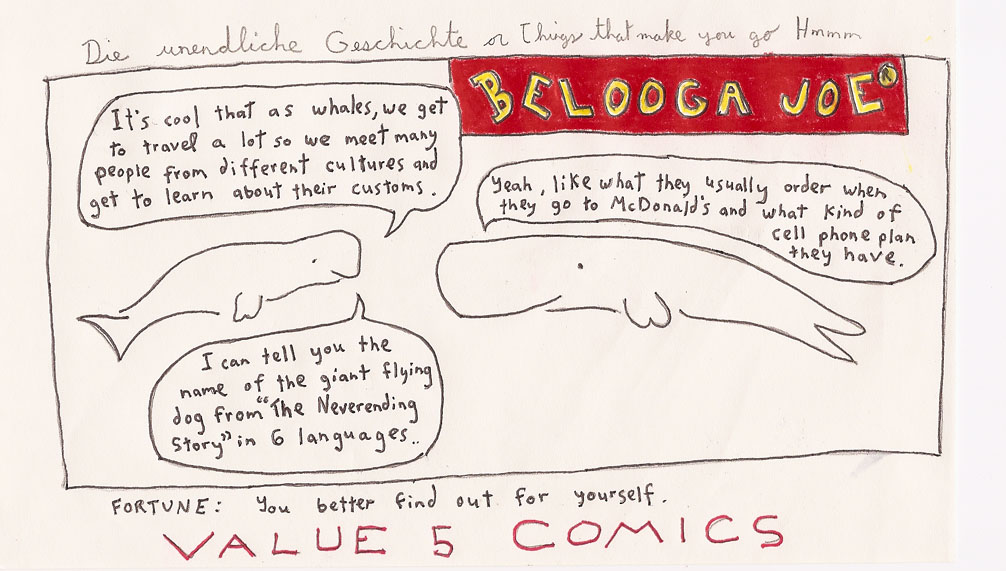 Die unendliche Geschichte or Things that make you go Hmmm
BELOOGA JOE®
It's cool that as whales, we get
to travel a lot so we meet many
people from different cultures and
get to learn about their customs.
Yeah, like what they usually order when
they go to McDonald's and what kind of
cell phone plan
they have.
I can tell you the
name of the giant flying
dog from "The Neverending
Story" in 6 languages..
FORTUNE: You better find out for yourself.
VALUE 5 COMICS